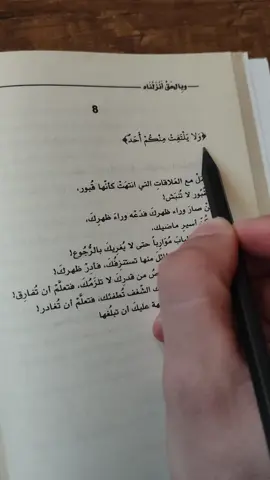 وبِالحَقُ أنزَلْنَاه
8
﴿وَلَا يَلْتَفِتْ مِنكُمْ أَحَدٌ﴾
مع العَلاقاتِ التي انتهَتْ كأنّها قُبور،
لا تُنبَش!
صارَ وراء ظهركَ فدَعْه وراءَ ظهرِكَ،
أسيرَ ماضيك،
مُوَارِباً حتى لا يُغريكَ بالرُّجوع!
منها تستنزِفُكَ، فأدِرْ ظهرك!
من قدرِكَ لا تلزَمُكَ، فتعلَّمْ أن تُفارِق!
الشّغف تُطفئك، فتعلَّم أن تُغادر!
عليكَ أن تبلُغها